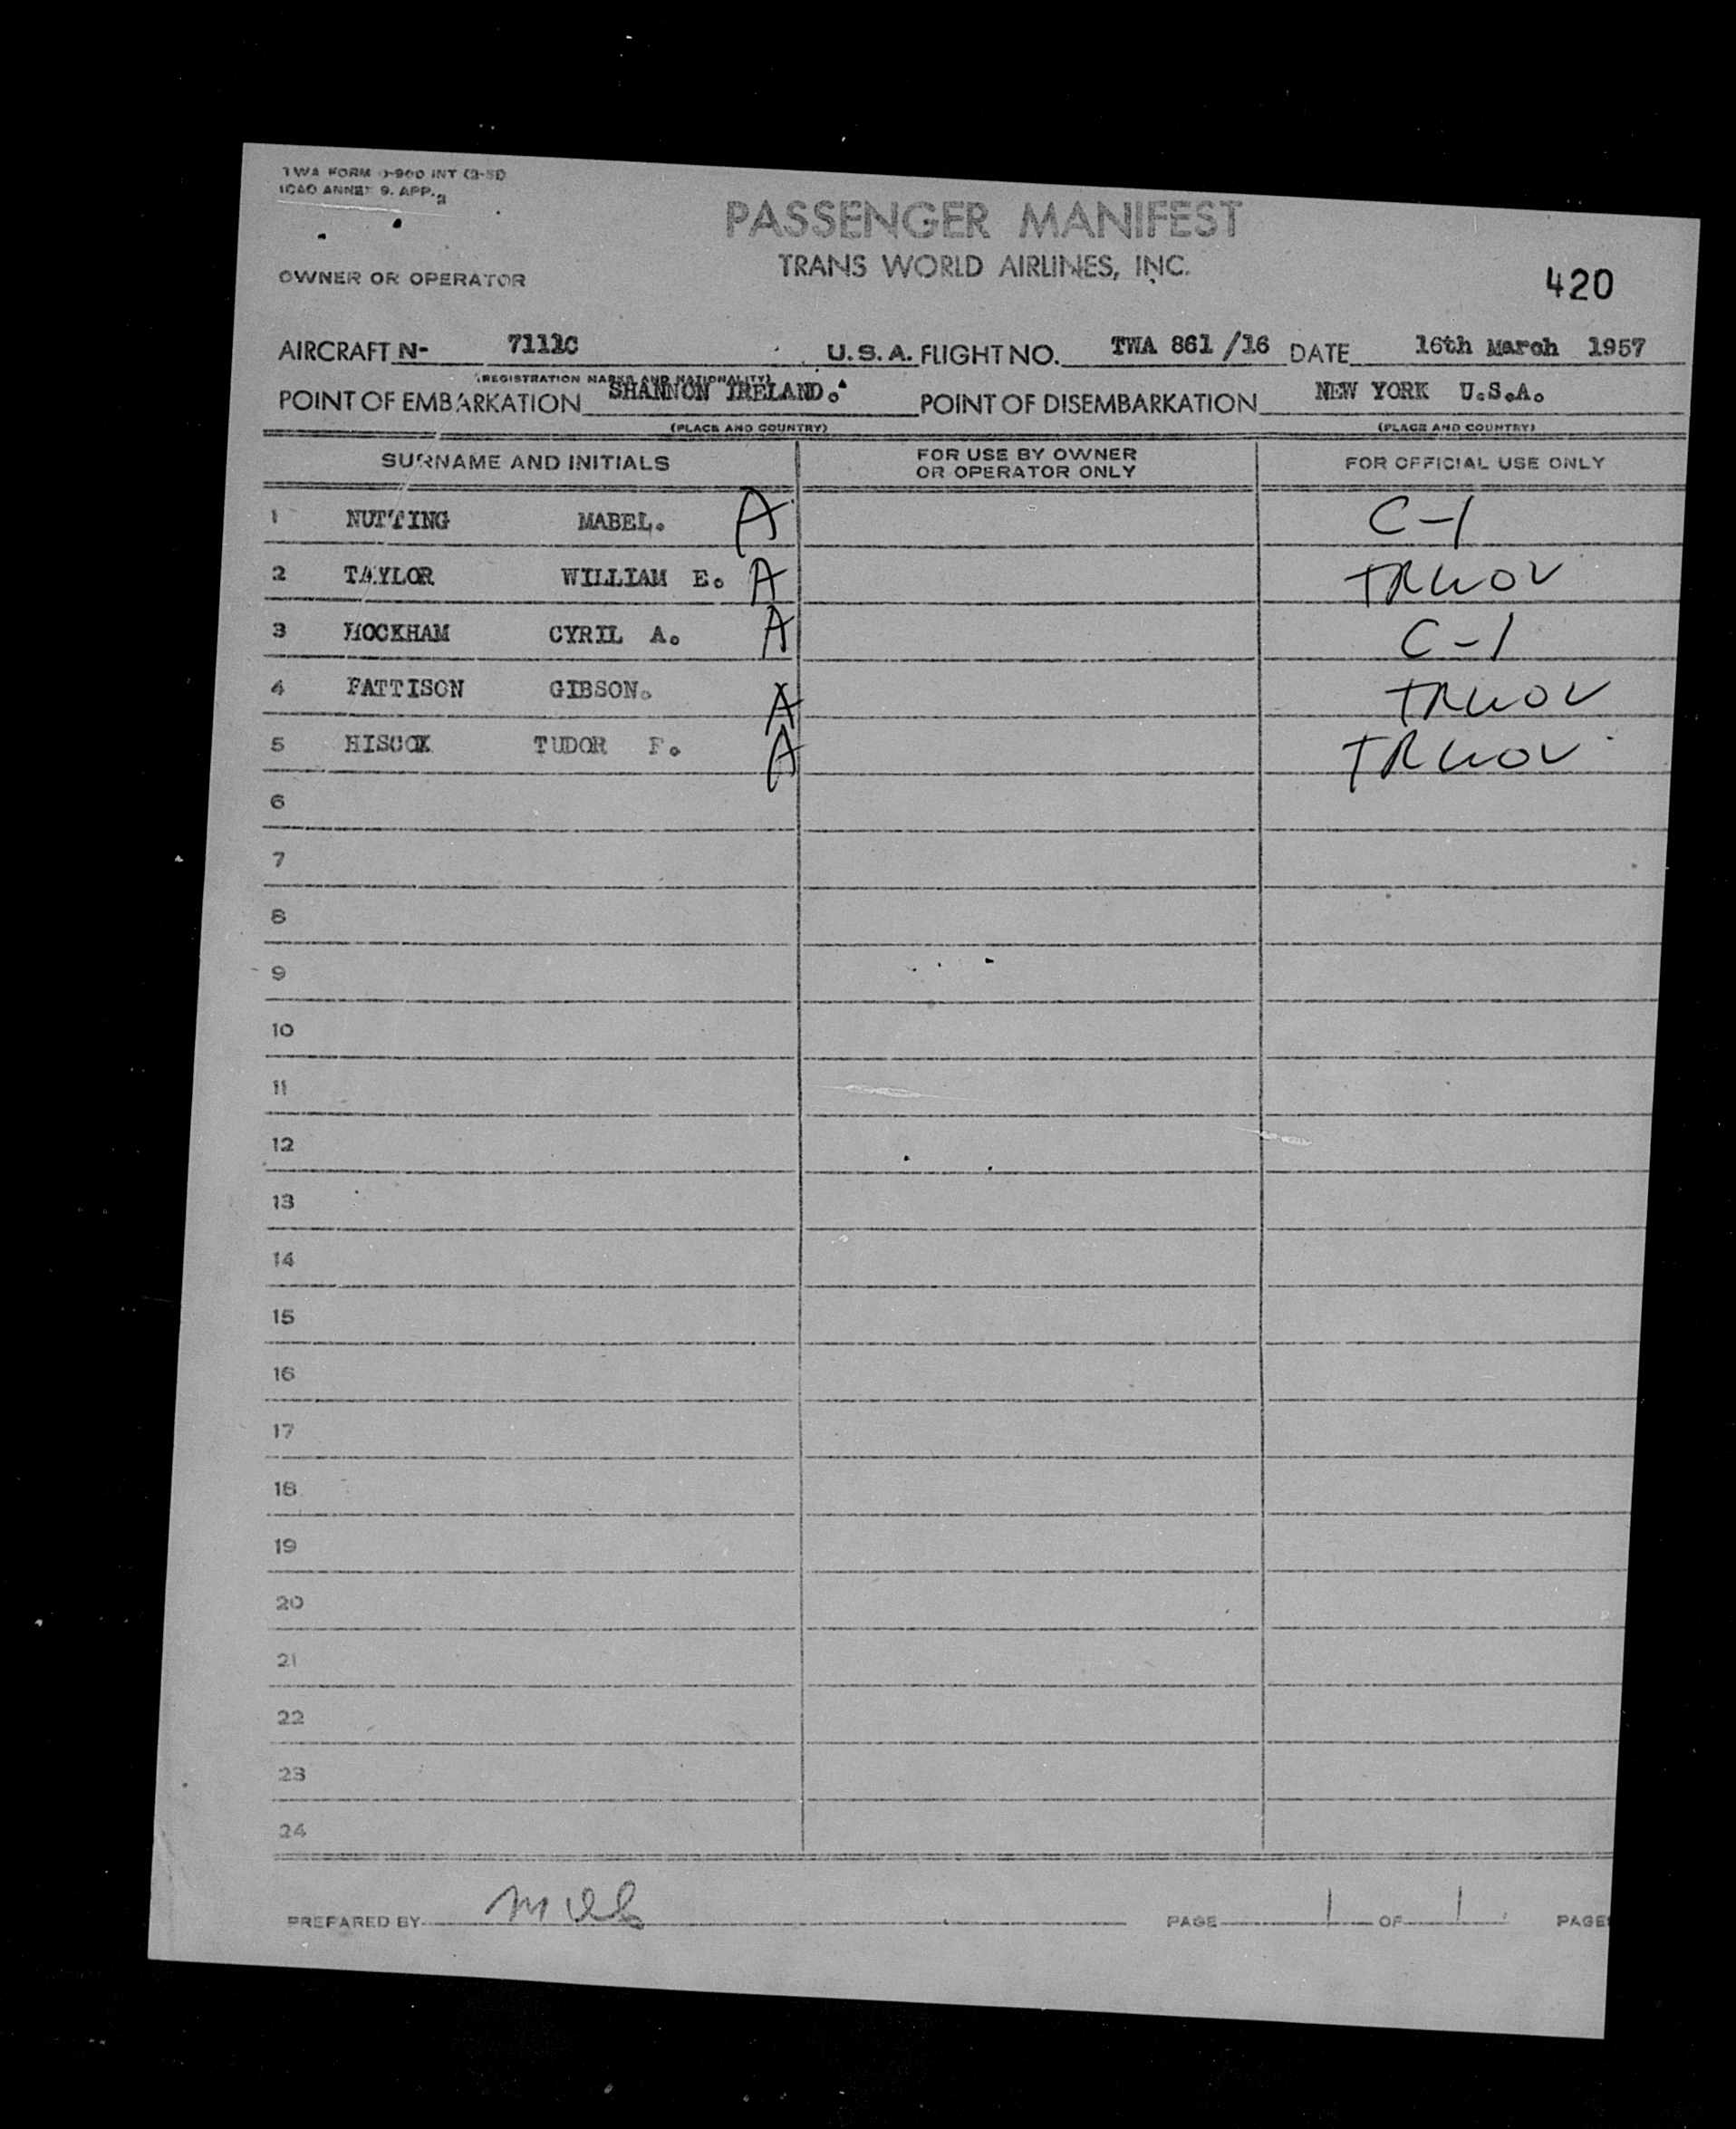 TWA FORM O-960 INT (3-51)
ICAO ANNEX 9. APP. 2
PASSENGER MANIFEST
TRANS WORLD AIRLINES, INC.
OWNER OR OPERATOR
420
AIRCRAFT N- 7111C U.S.A. FLIGHT NO. TWA 861 /16 DATE 16th March 1957
(REGISTRATION MARKS AND NATIONALITY)
POINT OF EMBARKATION SHANNON IRELAND. POINT OF DISEMBARKATION NEW YORK U.S.A.
(PLACE AND COUNTRY) (PLACE AND COUNTRY)
SURNAME AND INITIALS FOR USE BY OWNER OR OPERATOR ONLY FOR OFFICIAL USE ONLY
1 NUTTING MABEL. A C-1
2 TAYLOR WILLIAM E. A TRWOV
3 HOCKHAM CYRIL A. A C-1
4 PATTISON GIBSON. A TRWOV
5 HISCOX TUDOR F. A TRWOV
6
7
8
9
10
11
12
13
14
15
16
17
18
19
20
21
22
23
24
PREPARED BY PAGE 1 OF 1 PAGE